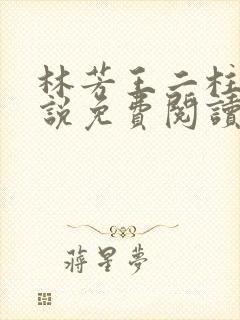 林芳王二柱
說免費閱讀
蔣星夢